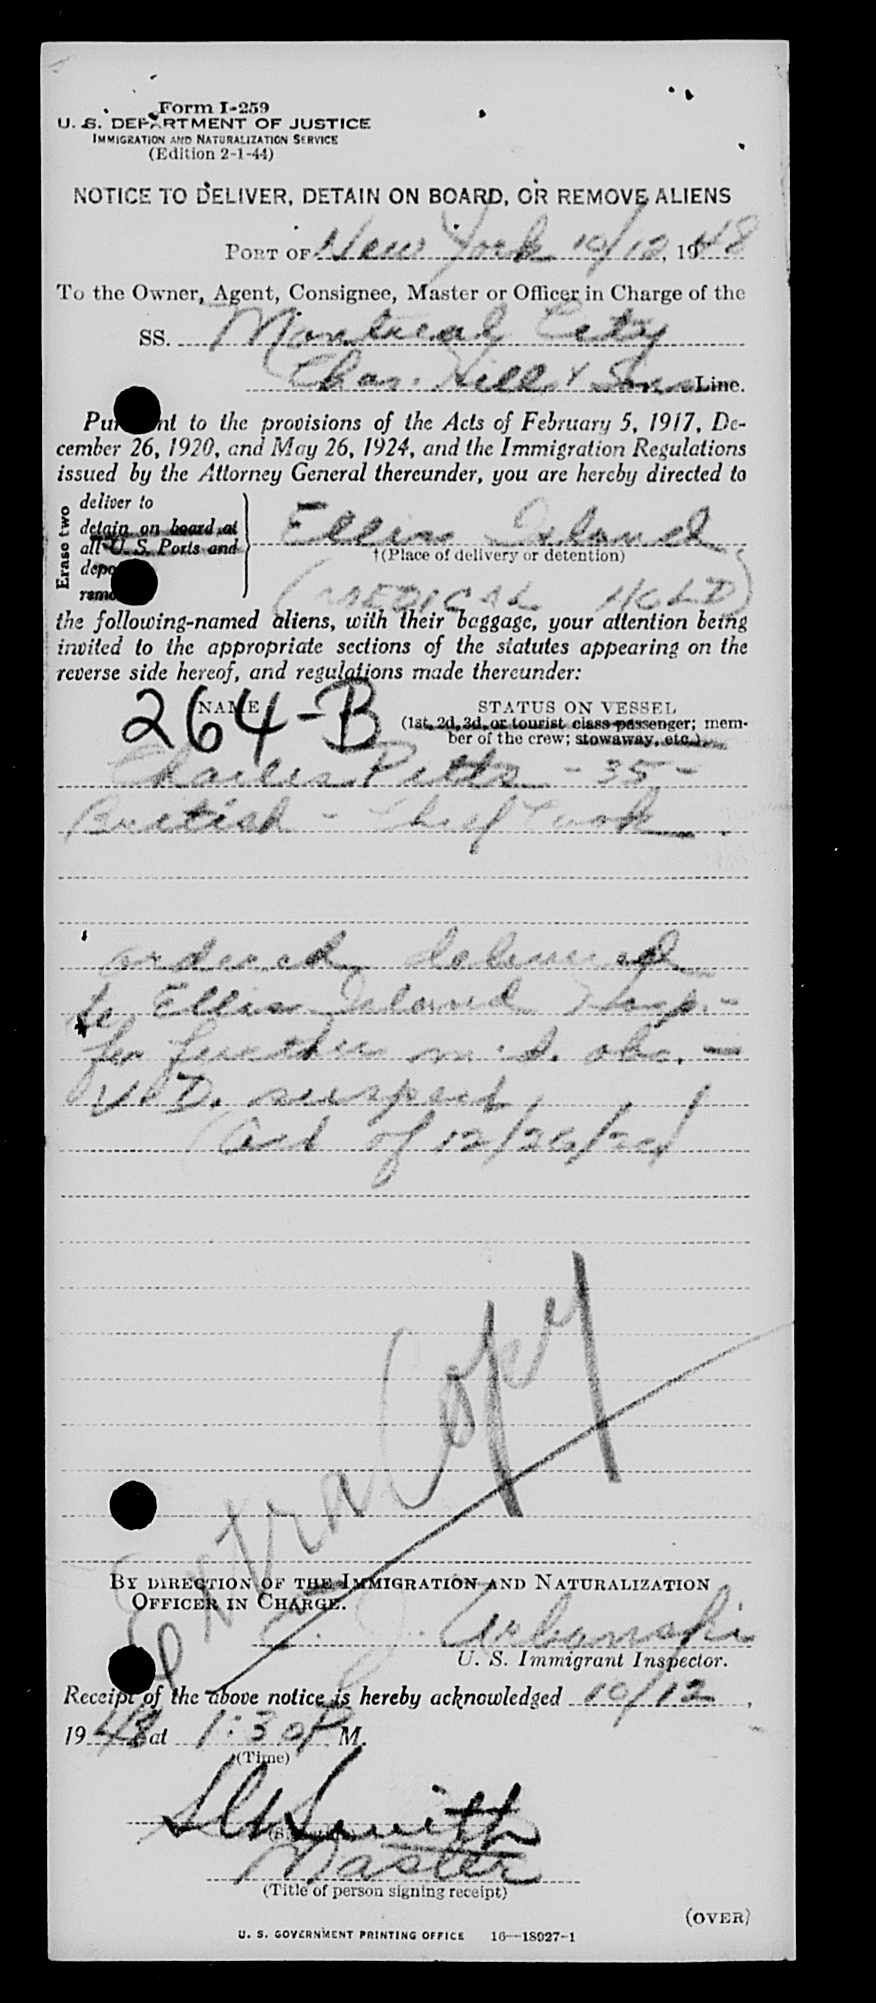 Form I-259
U. S. DEPARTMENT OF JUSTICE
IMMIGRATION AND NATURALIZATION SERVICE
(Edition 2-1-44)
NOTICE TO DELIVER, DETAIN ON BOARD, OR REMOVE ALIENS
PORT OF New York 10/12, 1948
To the Owner, Agent, Consignee, Master or Officer in Charge of the
SS. Montreal City
Chas. Hill & Sons Line.
Pursuant to the provisions of the Acts of February 5, 1917, De-
cember 26, 1920, and May 26, 1924, and the Immigration Regulations
issued by the Attorney General thereunder, you are hereby directed to
Erase two
deliver to
detain on board at
all U. S. Ports and
depo
remo
Ellis Island
†(Place of delivery or detention)
(MEDICAL HOLD)
the following-named aliens, with their baggage, your attention being
invited to the appropriate sections of the statutes appearing on the
reverse side hereof, and regulations made thereunder:
NAME STATUS ON VESSEL
264-B
(1st, 2d, 3d, or tourist class passenger; mem-
ber of the crew; stowaway, etc.)
Charles Pitts - 35 -
British - Chief Cook
ordered delivered
to Ellis Island Hosp. -
for further med. obs. -
V.D. suspect
Act of 12/26/20
Extra Copy
BY DIRECTION OF THE IMMIGRATION AND NATURALIZATION
OFFICER IN CHARGE.
Urbanski
U. S. Immigrant Inspector.
Receipt of the above notice is hereby acknowledged 10/12,
1948 at 1:30 P M.
(Time)
Smith
Master
(Title of person signing receipt)
(OVER)
U. S. GOVERNMENT PRINTING OFFICE 16—18027-1